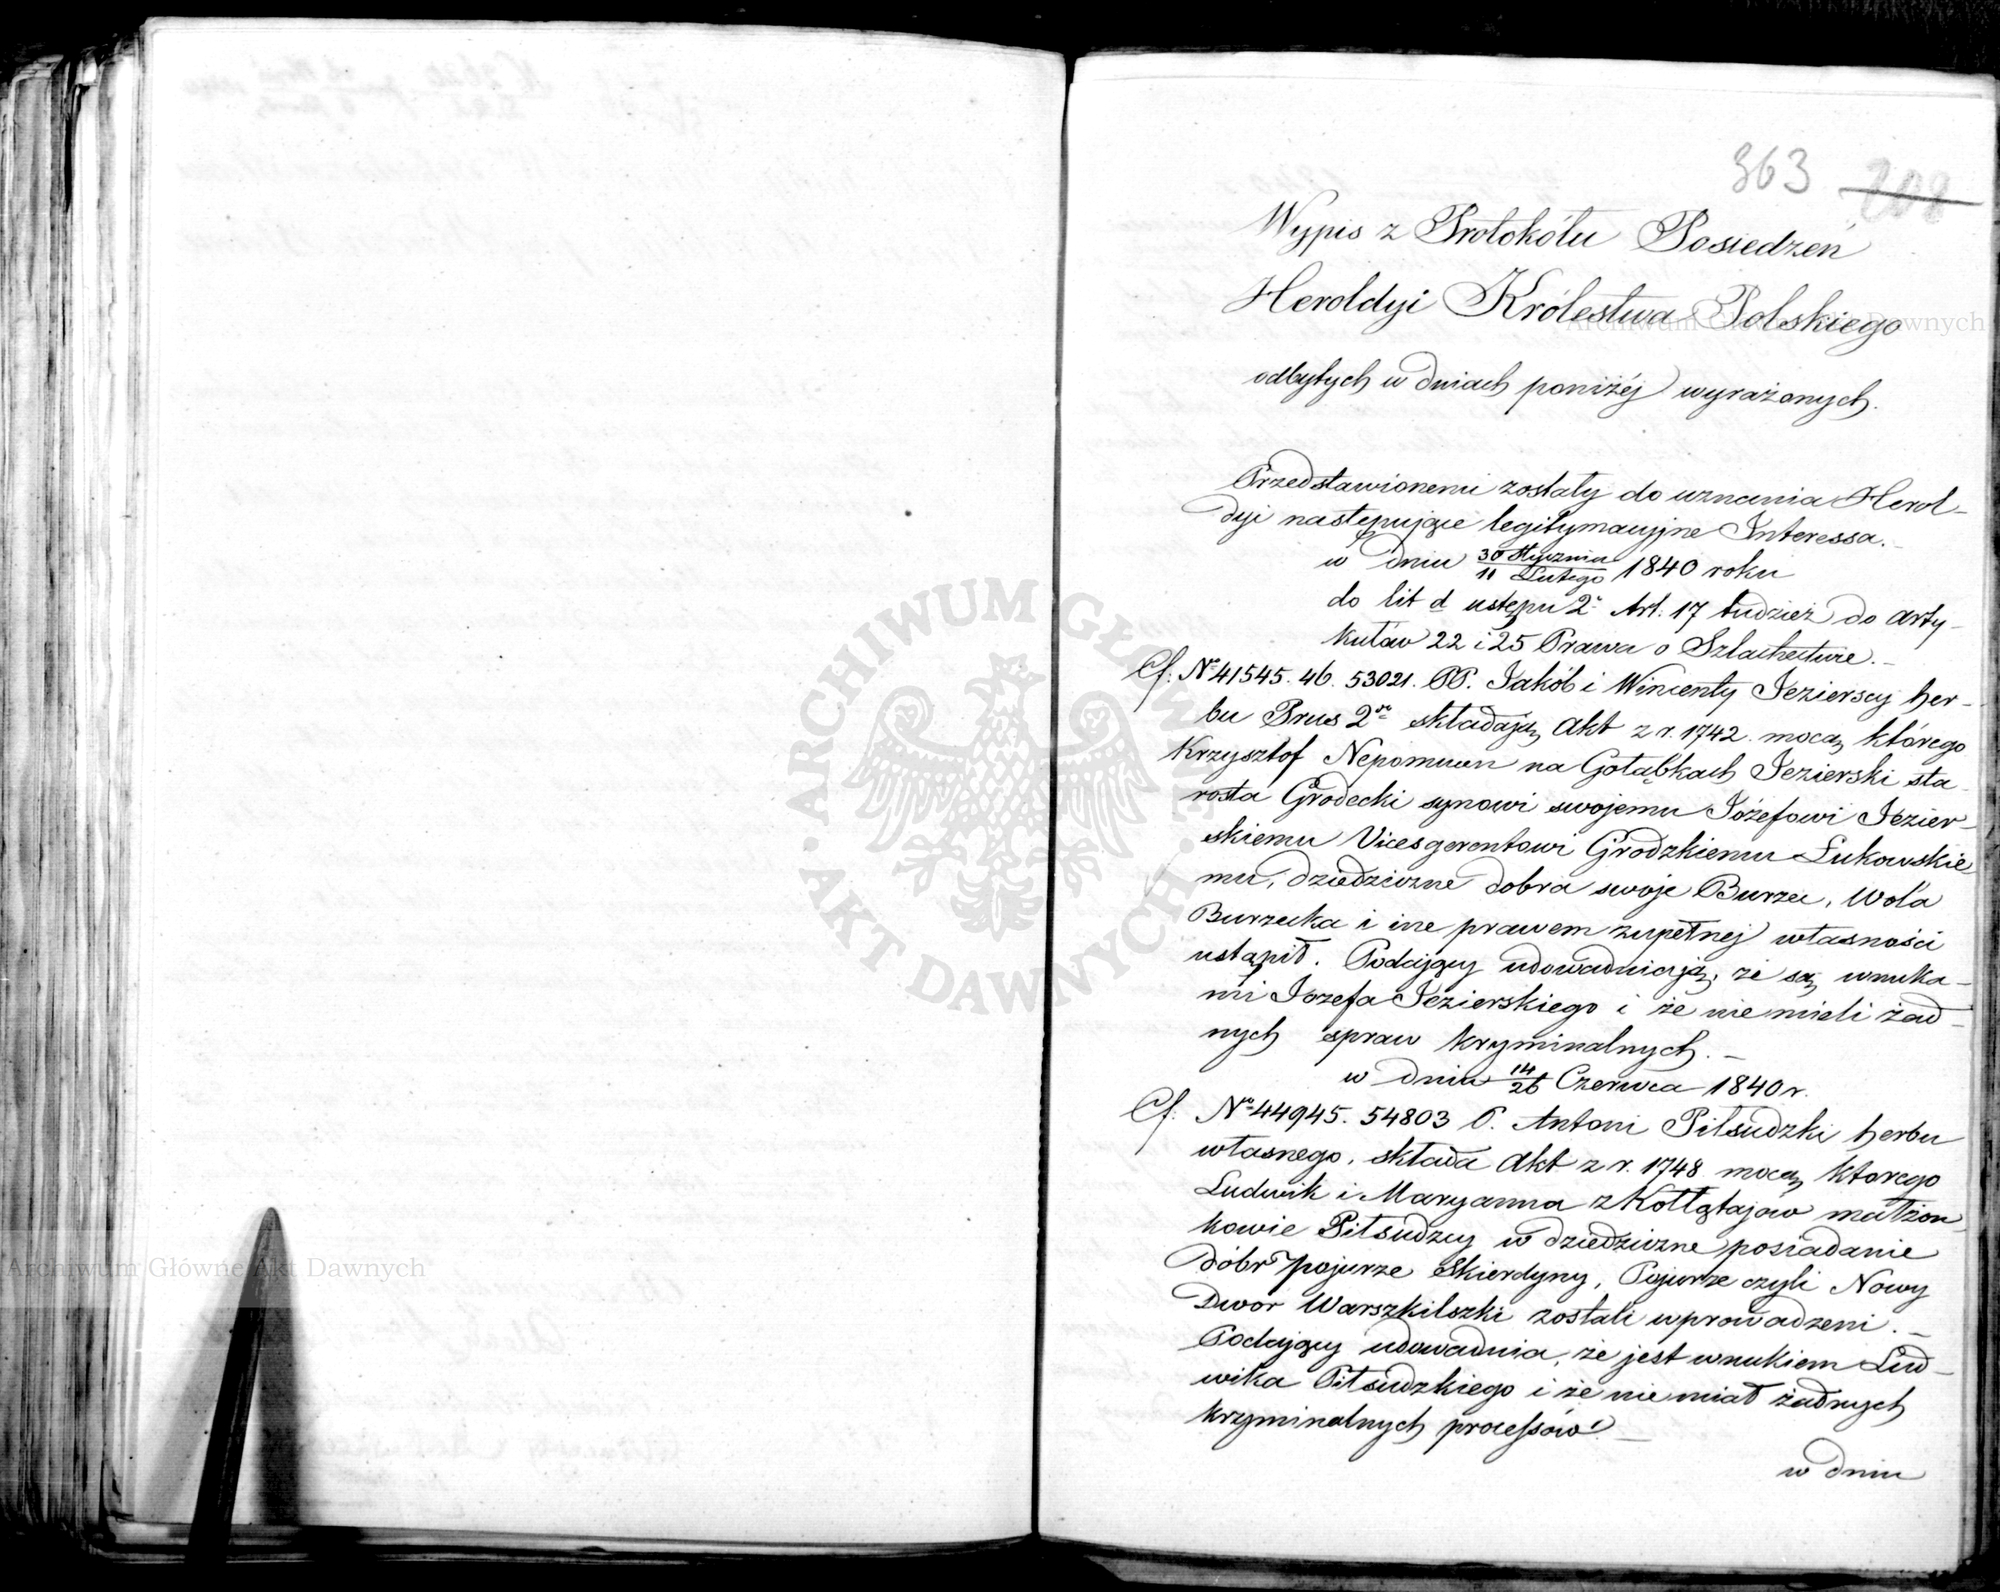 363 208
Wypis z Protokółu Posiedzeń
Heroldyi Królestwa Polskiego
odbytych w dniach poniżéj wyrażonych.
Przedstawionemi zostały do uznania Herol-
dyi następujące legitymacyjne Interessa.
w dniu 30 Stycznia / 11 Lutego 1840 roku
do lit d ustępu 2º Art. 17 tudzież do arty-
kułów 22 i 25 Prawa o Szlachectwie.
Cf. Nº 41545. 46. 53021. PP. Jakób i Wincenty Jezierscy her-
bu Prus 2º składają Akt z r. 1742. mocą którego
Krzysztof Nepomucen na Gołąbkach Jezierski sta-
rosta Grodecki synowi swojemu Józefowi Jezier-
skiemu Vicesgerentowi Grodzkiemu Łukowskie
mu, dziedziczne dobra swoje Burzec, Wola
Burzecka i ine prawem zupełnej własności
ustąpił. Podający udowadniają, że są wnuka-
mi Józefa Jezierskiego i że nie mieli żad-
nych spraw kryminalnych.
w dniu 14/26 Czerwca 1840 r.
Cf. Nº 44945. 54803 P. Antoni Piłsudzki herbu
własnego, składa Akt z r. 1748 mocą ktorego
Ludwik i Maryanna z Kołłątajow małżon-
kowie Piłsudzcy w dziedziczne posiadanie
dóbr Pojurze Skierdyny, Pojurze czyli Nowy
Dwor Warszkilszki zostali wprowadzeni.
Podający udowadnia, że jest wnukiem Lud-
wika Piłsudzkiego i że nie miał żadnych
kryminalnych processów.
w dniu
ARCHIWUM GŁÓWNE AKT DAWNYCH
Archiwum Główne Akt Dawnych
Archiwum Główne Akt Dawnych